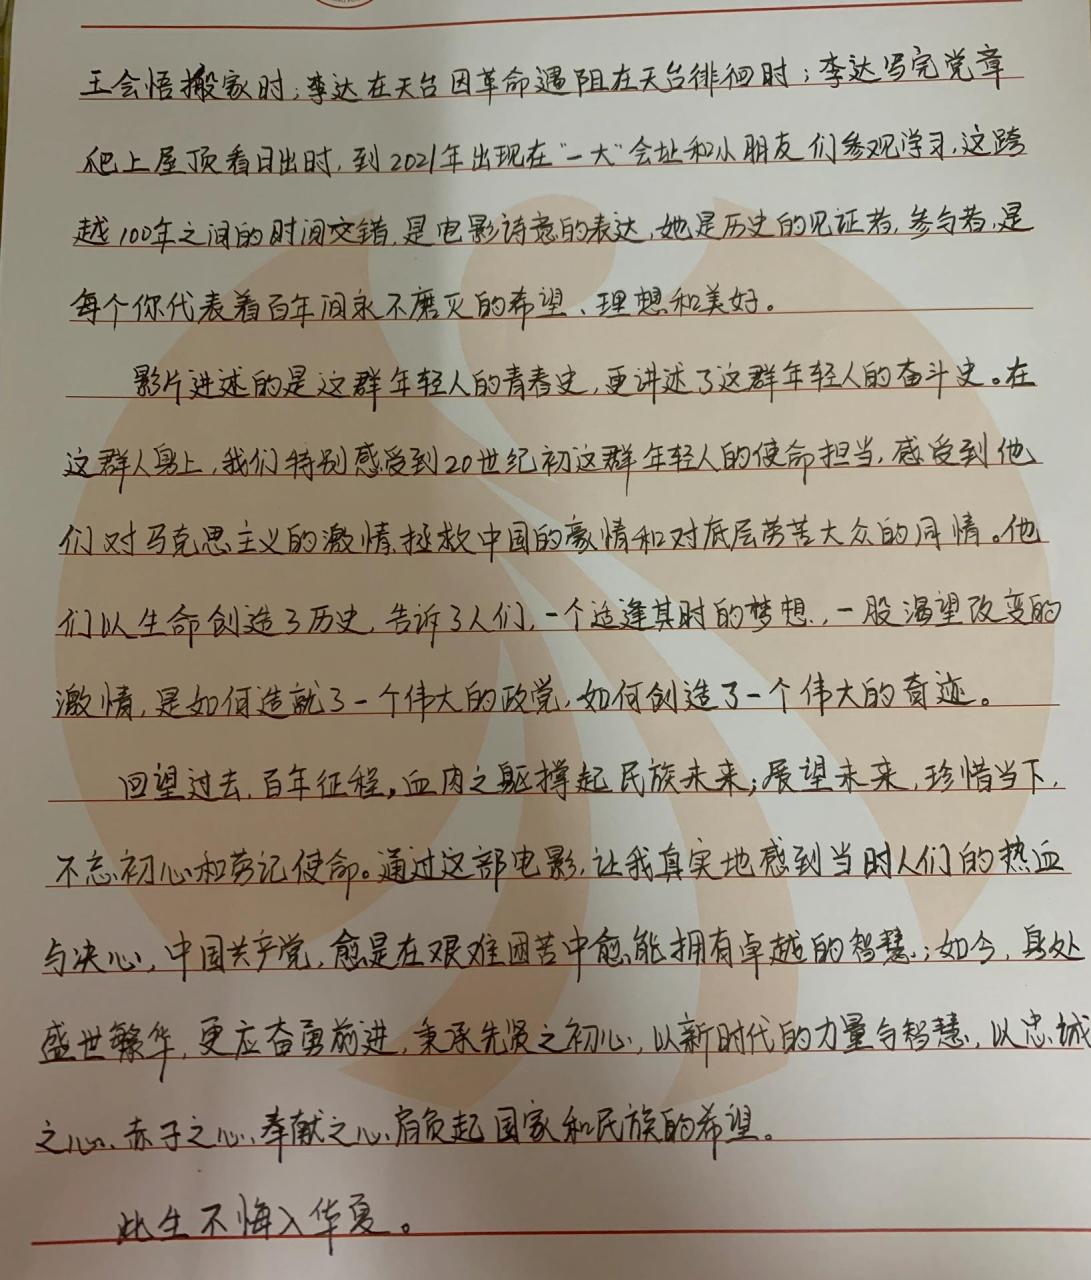 王会悟搬家时；李达在天台因革命遇阻在天台徘徊时；李达写完党章
爬上屋顶看日出时，到2021年出现在“一大”会址和小朋友们参观学习，这跨
越100年之间的时间交错，是电影诗意的表达，她是历史的见证者，参与者，是
每个你代表着百年间永不磨灭的希望、理想和美好。
影片讲述的是这群年轻人的青春史，更讲述了这群年轻人的奋斗史。在
这群人身上，我们特别感受到20世纪初这群年轻人的使命担当，感受到他
们对马克思主义的激情，拯救中国的豪情和对底层劳苦大众的同情。他
们以生命创造了历史，告诉了人们，一个适逢其时的梦想，一股渴望改变的
激情，是如何造就了一个伟大的政党，如何创造了一个伟大的奇迹。
回望过去，百年征程，血肉之躯撑起民族未来；展望未来，珍惜当下，
不忘初心和劳记使命。通过这部电影，让我真实地感到当时人们的热血
与决心，中国共产党，愈是在艰难困苦中愈能拥有卓越的智慧；如今，身处
盛世繁华，更应奋勇前进，秉承先贤之初心，以新时代的力量与智慧，以忠诚
之心、赤子之心、奉献之心肩负起国家和民族的希望。
此生不悔入华夏。